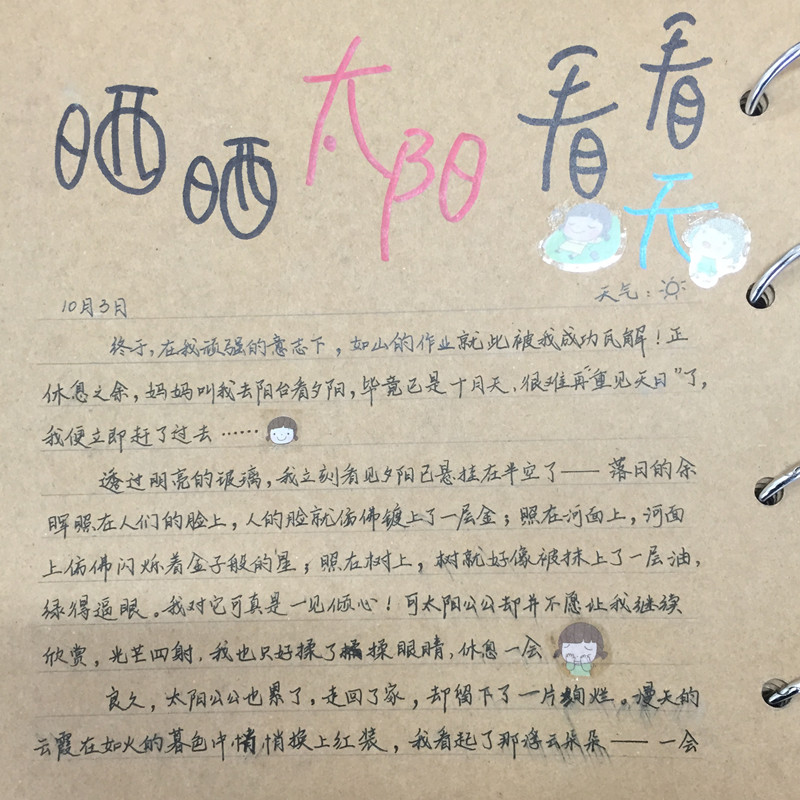 晒晒太阳看看天
10月3日 天气：
终于，在我顽强的意志下，如山的作业就此被我成功瓦解！正
休息之余，妈妈叫我去阳台看夕阳，毕竟已是十月天，很难再“重见天日”了，
我便立即赶了过去……
透过明亮的玻璃，我立刻看见夕阳已悬挂在半空了——落日的余
晖照在人们的脸上，人的脸就仿佛镀上了一层金；照在河面上，河面
上仿佛闪烁着金子般的星；照在树上，树就好像被抹上了一层油，
绿得逼眼。我对它可真是一见倾心！可太阳公公却并不愿让我继续
欣赏，光芒四射，我也只好揉了揉眼睛，休息一会
良久，太阳公公也累了，走回了家，却留下了一片绚烂。漫天的
云霞在如火的暮色中悄悄换上红装，我看起了那浮云朵朵——一会